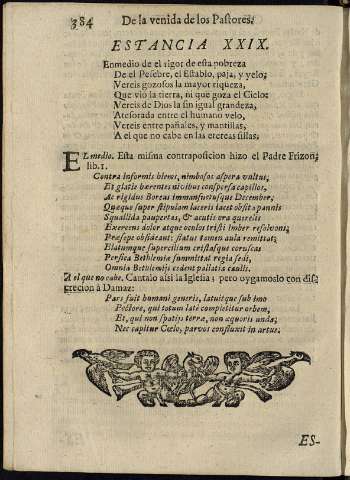 384 De la venida de los Pastores.
ESTANCIA XXIX.
Enmedio de el rigor de esta pobreza
De el Pesebre, el Establo, paja, y yelo;
Vereis gozosos la mayor riqueza,
Que vio la tierra, ni que goza el Cielo:
Vereis de Dios la sin igual grandeza,
Atesorada entre el humano velo,
Vereis entre pañales, y mantillas,
A el que no cabe en las etereas sillas.
EL medio. Esta misma contraposicion hizo el Padre Frizon;
lib. 1.
Contra informis hiems, nimbosas aspera vultus,
Et glacie hærentes nivibus conspersa capillos,
Ac rigidus Boreas immansuetusque December;
Quæque super stipulam laceris iacet obsita pannis
Squallida paupertas, & acutis ora querelis
Exerens dolor atque oculos tristi imber resolvens;
Præsepe obsideant: status tamen aula remittat;
Elatumque supercilium cristasque coruscas
Persica Bethlemiæ summittat regia sedi,
Omnia Bethlemiis cedant pallatia caulis.
A el que no cabe. Cantalo asi la Iglesia; pero oygamoslo con dis-
crecion à Damaz:
Pars fuit humani generis, latuitque sub imo
Pectore, qui totum latè complectitur orbem,
Et, qui non spatiis terræ, non æquoris undæ;
Nec capitur Cœlo, parvos confluxit in artus.
ES-